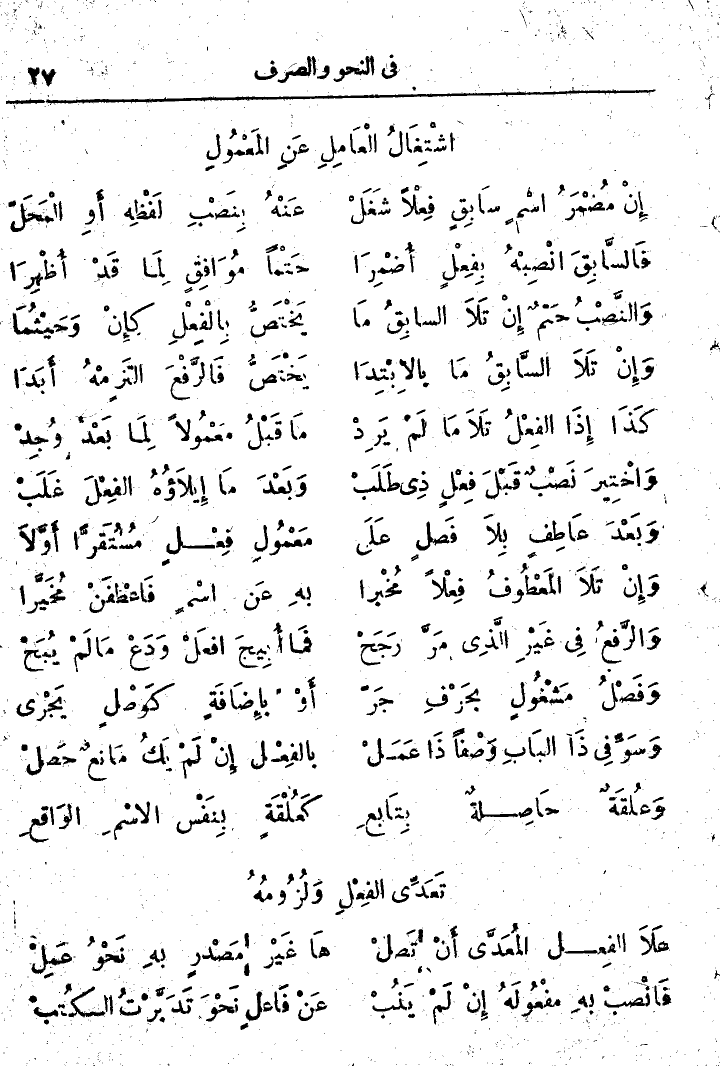 في النحو والصرف ٢٧
اشْتِغَالُ الْعَامِلِ عَنِ المَعْمُولِ
إِنْ مُضْمَرُ اسْمٍ سَابِقٍ فِعْلاً شَغَلْ عَنْهُ بِنَصْبِ لَفْظِهِ أَوِ الْمَحَلّ
فَالسَّابِقَ انْصِبْهُ بِفِعْلٍ أُضْمِرَا حَتْماً مُوَافِقٍ لِمَا قَدْ أُظْهِرَا
وَالنَّصْبُ حَتْمٌ إِنْ تَلَا السابِقُ مَا يَخْتَصُّ بِالْفِعْلِ كَإِنْ وَحَيْثُمَا
وَإِنْ تَلَا السَّابِقُ مَا بِالاِبْتِدَا يَخْتَصُّ فَالرَّفْعَ الْتَزِمْهُ أَبَدَا
كَذَا إِذَا الفِعْلُ تَلَا مَا لَمْ يَرِدْ مَا قَبْلُ مَعْمُولاً لِمَا بَعْدُ وُجِدْ
وَاخْتِيرَ نَصْبٌ قَبْلَ فِعْلٍ ذِى طَلَبْ وَبَعْدَ مَا إِيلَاؤُهُ الفِعْلَ غَلَبْ
وَبَعْدَ عَاطِفٍ بِلَا فَصْلٍ عَلَى مَعْمُولِ فِعْلٍ مُسْتَقِرٍّ أَوَّلاَ
وَإِنْ تَلَا المَعْطُوفُ فِعْلاً مُخْبِرا بِهِ عَنِ اسْمٍ فَاعْطِفَنْ مُخَيَّرا
وَالرَّفعُ فِى غَيْرِ الَّذِى مَرَّ رَجَحْ فَمَا أُبِيحَ افعَلْ وَدَعْ مَالَمْ يُبَحْ
وَفَصْلُ مَشْغُولٍ بِحَرْفِ جَرّ أَوْ بِإِضَافَةٍ كَوَصْلٍ يَجْرِى
وَسَوِّ فِى ذَا البَابِ وَصْفاً ذَا عَمَلْ بالفِعْلِ إِنْ لَمْ يَكُ مَانِعٌ حَصَلْ
وَعُلقَةٌ حَاصِلةٌ بِتَابِعِ كَعُلْقَةٍ بِنَفْسِ الاسْمِ الوَاقِعِ
تَعَدِّى الفِعْلِ وَلُزُومُهُ
عَلاَ الفِعْلِ المُعَدَّى أَنْ تَصِلْ هَا غَيْرِ مَصْدَرٍ بِهِ نَحْوُ عَمِلْ
فَانْصِبْ بِهِ مفْعُولَهُ إِنْ لَمْ يَنُبْ عَنْ فَاعلٍ نَحْوَ تَدَبَّرْتُ الكُتُبْ